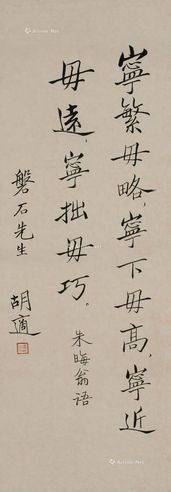 寧繁毋略，寧下毋高，寧近
毋遠，寧拙毋巧。
朱晦翁语
磐石先生
胡適